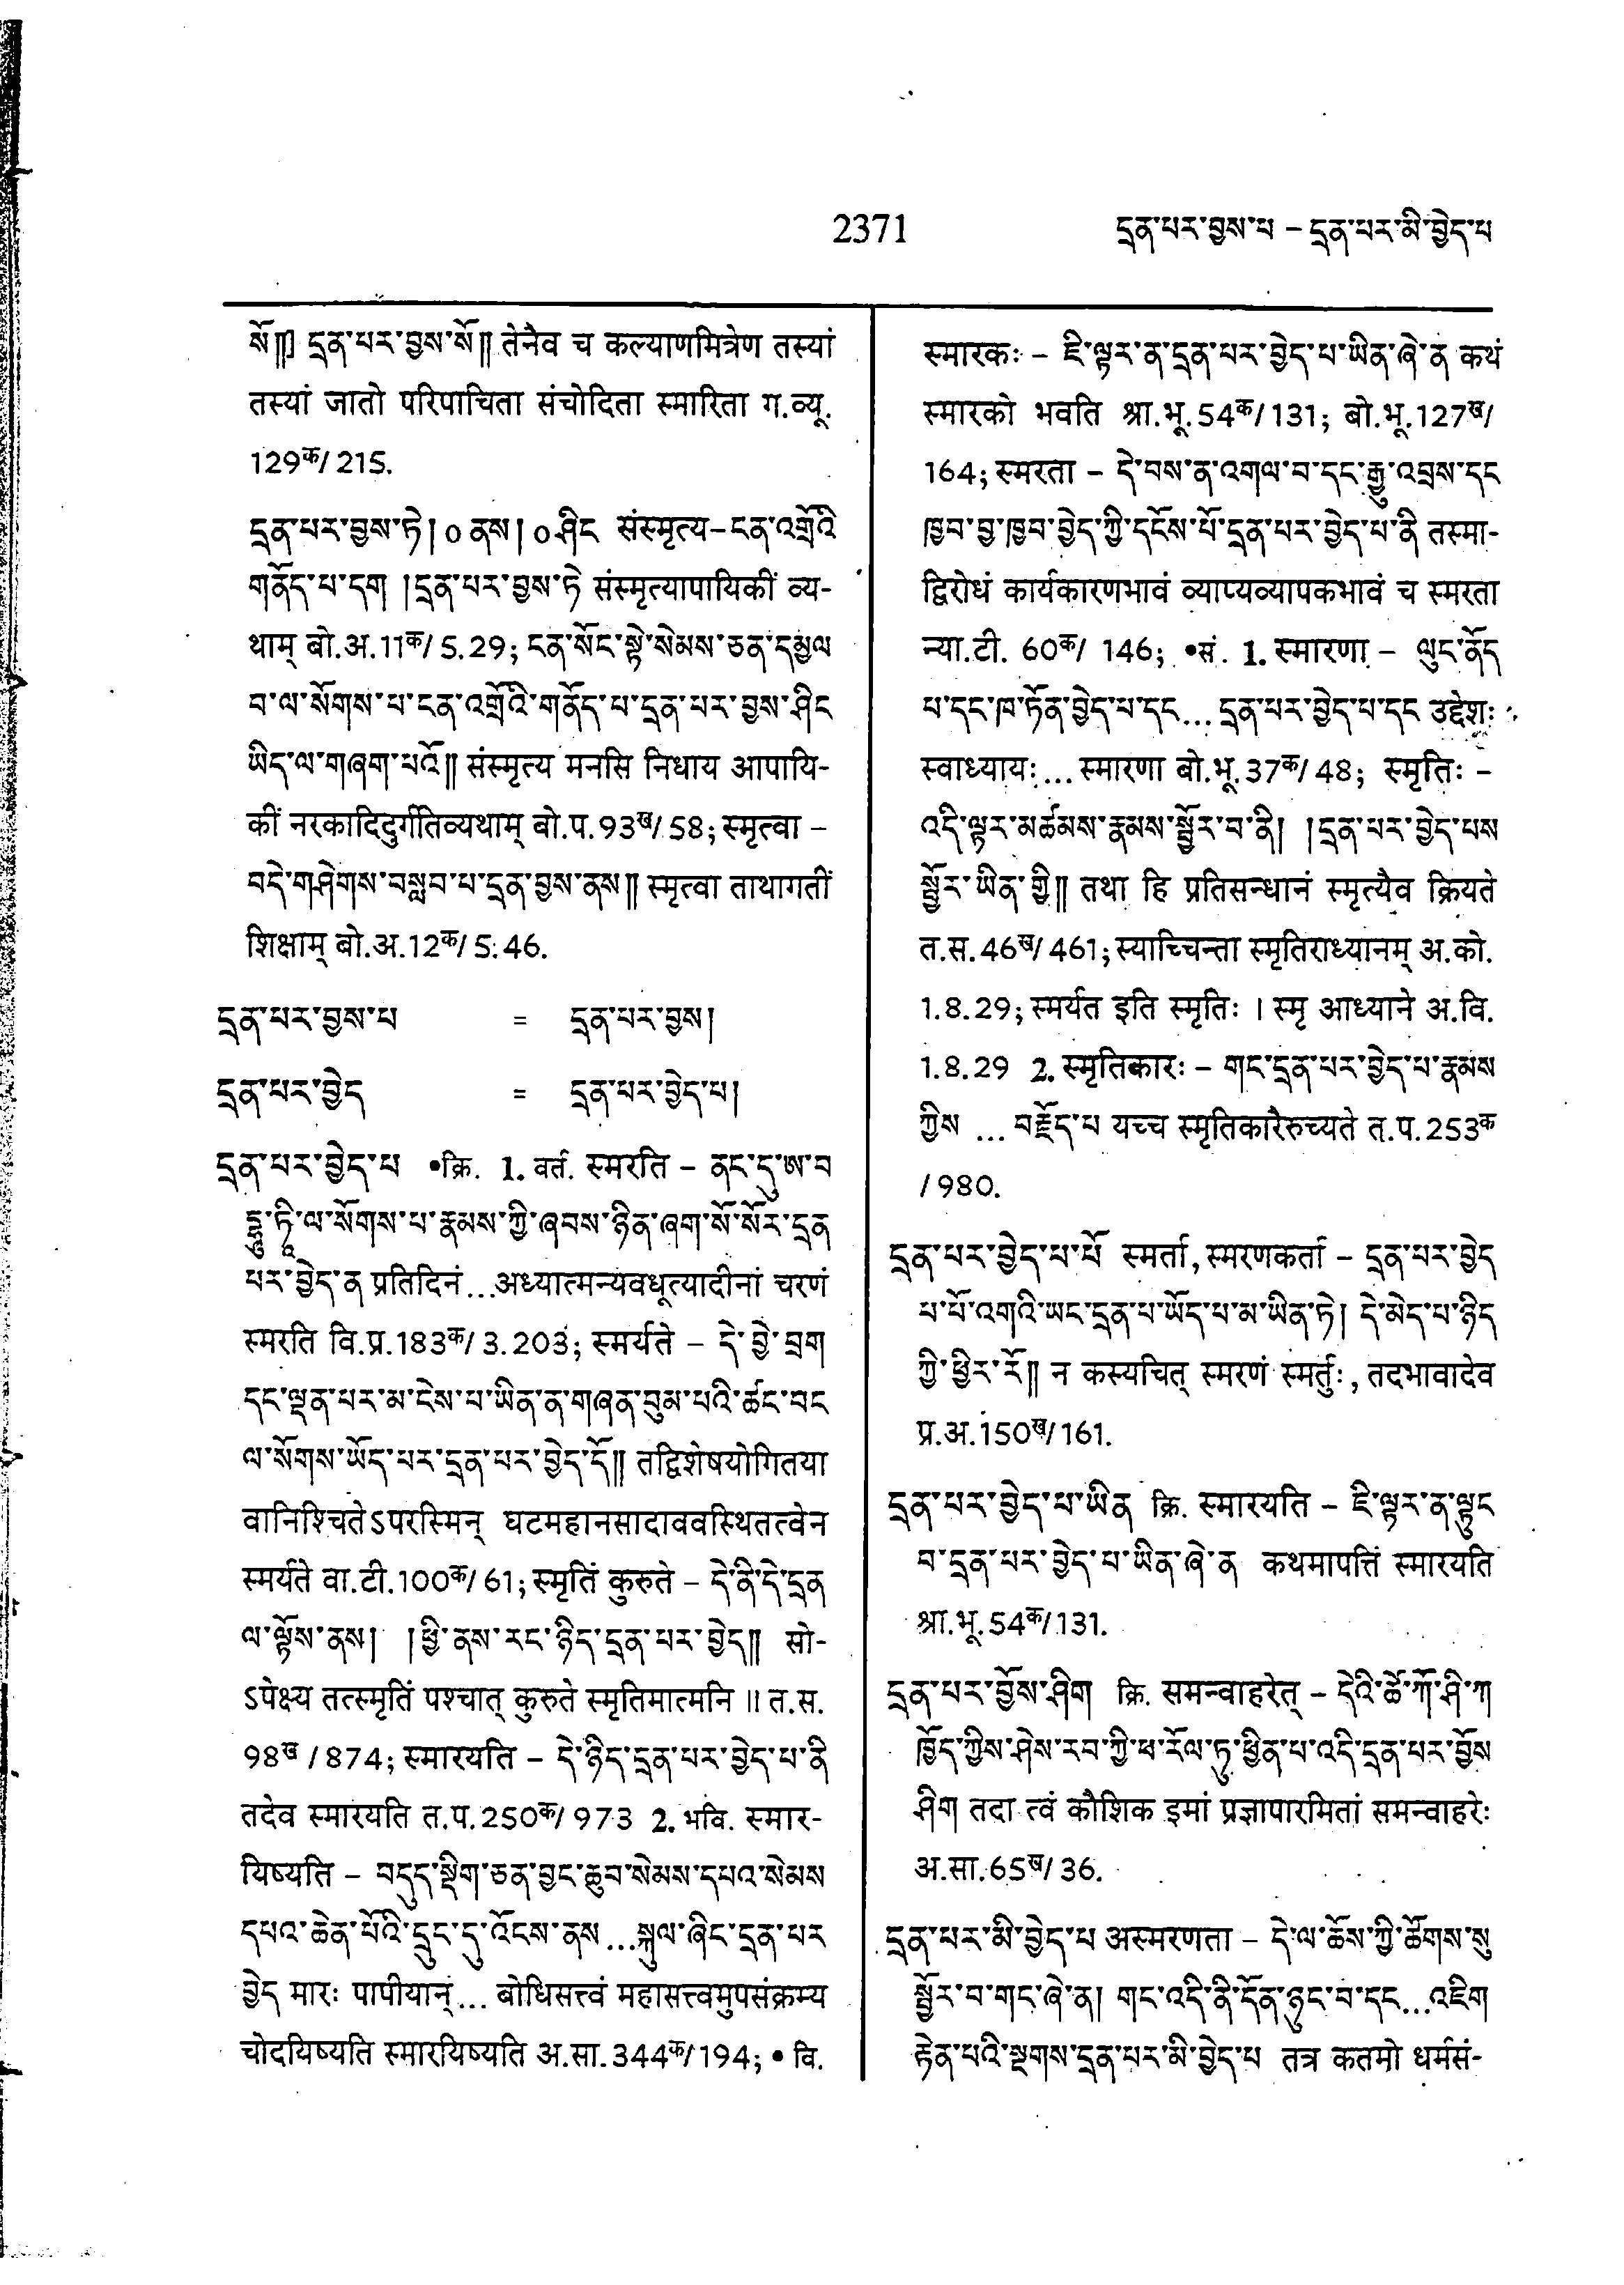 2371
དྲན་པར་བྱས་པ – དྲན་པར་མི་བྱེད་པ
སོ༎] དྲན་པར་བྱས་སོ༎ तेनैव च कल्याणमित्रेण तस्यां
तस्यां जातो परिपाचिता संचोदिता स्मारिता ग.व्यू.
129क/215.
དྲན་པར་བྱས་ཏེ། ० ནས། ० ཤིང संस्मृत्य – ངན་འགྲོའི
གནོད་པ་དག །དྲན་པར་བྱས་ཏེ संस्मृत्यापायिकीं व्य-
थाम् बो.अ.11क/5.29; ངན་སོང་སྟེ་སེམས་ཅན་དམྱལ
བ་ལ་སོགས་པ་ངན་འགྲོའི་གནོད་པ་དྲན་པར་བྱས་ཤིང
ཡིད་ལ་གཞག་པའོ༎ संस्मृत्य मनसि निधाय आपायि-
कीं नरकादिदुर्गतिव्यथाम् बो.प.93ख/58; स्मृत्वा –
བདེ་གཤེགས་བསླབ་པ་དྲན་བྱས་ནས༎ स्मृत्वा ताथागतीं
शिक्षाम् बो.अ.12क/5.46.
དྲན་པར་བྱས་པ = དྲན་པར་བྱས།
དྲན་པར་བྱེད = དྲན་པར་བྱེད་པ།
དྲན་པར་བྱེད་པ •क्रि. 1. वर्त. स्मरति – ནང་དུ་ཨ་བ
དྷཱུ་ཏཱི་ལ་སོགས་པ་རྣམས་ཀྱི་ཞབས་ཉིན་ཞག་སོ་སོར་དྲན
པར་བྱེད་ན प्रतिदिनं...अध्यात्मन्यवधूत्यादीनां चरणं
स्मरति वि.प्र.183क/3.203; स्मर्यते – དེ་བྱེ་བྲག
དང་ལྡན་པར་མ་ངེས་པ་ཡིན་ན་གཞན་བུམ་པའི་ཚང་བང
ལ་སོགས་ཡོད་པར་དྲན་པར་བྱེད་དོ༎ तद्विशेषयोगितया
वानिश्चितेऽपरस्मिन् घटमहानसादाववस्थितत्वेन
स्मर्यते वा.टी.100क/61; स्मृतिं कुरुते – དེ་ནི་དེ་དྲན
ལ་ལྟོས་ནས། །ཕྱི་ནས་རང་ཉིད་དྲན་པར་བྱེད༎ सो-
ऽपेक्ष्य तत्स्मृतिं पश्चात् कुरुते स्मृतिमात्मनि ॥ त.स.
98ख/874; स्मारयति – དེ་ཉིད་དྲན་པར་བྱེད་པ་ནི
तदेव स्मारयति त.प.250क/973 2. भवि. स्मार-
यिष्यति – བདུད་སྡིག་ཅན་བྱང་ཆུབ་སེམས་དཔའ་སེམས
དཔའ་ཆེན་པོའི་དྲུང་དུ་འོངས་ནས...སྐུལ་ཞིང་དྲན་པར
བྱེད मारः पापीयान्... बोधिसत्त्वं महासत्त्वमुपसंक्रम्य
चोदयिष्यति स्मारयिष्यति अ.सा.344क/194; • वि.
स्मारकः – ཇི་ལྟར་ན་དྲན་པར་བྱེད་པ་ཡིན་ཞེ་ན कथं
स्मारको भवति श्रा.भू.54क/131; बो.भू.127ख/
164; स्मरता – དེ་བས་ན་འགལ་བ་དང་རྒྱུ་འབྲས་དང
ཁྱབ་བྱ་ཁྱབ་བྱེད་ཀྱི་དངོས་པོ་དྲན་པར་བྱེད་པ་ནི तस्मा-
द्विरोधं कार्यकारणभावं व्याप्यव्यापकभावं च स्मरता
न्या.टी. 60क/146; •सं. 1. स्मारणा – ལུང་ནོད
པ་དང་ཁ་ཏོན་བྱེད་པ་དང... དྲན་པར་བྱེད་པ་དང उद्देशः
स्वाध्यायः... स्मारणा बो.भू.37क/48; स्मृतिः –
འདི་ལྟར་མཚམས་རྣམས་སྦྱོར་བ་ནི། །དྲན་པར་བྱེད་པས
སྦྱོར་ཡིན་གྱི༎ तथा हि प्रतिसन्धानं स्मृत्यैव क्रियते
त.स.46ख/461; स्याच्चिन्ता स्मृतिराध्यानम् अ.को.
1.8.29; स्मर्यत इति स्मृतिः । स्मृ आध्याने अ.वि.
1.8.29 2. स्मृतिकारः – གང་དྲན་པར་བྱེད་པ་རྣམས
ཀྱིས ... བརྗོད་པ यच्च स्मृतिकारैरुच्यते त.प.253क
/980.
དྲན་པར་བྱེད་པ་པོ स्मर्ता, स्मरणकर्ता – དྲན་པར་བྱེད
པ་པོ་འགའི་ཡང་དྲན་པ་ཡོད་པ་མ་ཡིན་ཏེ། དེ་མེད་པ་ཉིད
ཀྱི་ཕྱིར་རོ༎ न कस्यचित् स्मरणं स्मर्तुः, तदभावादेव
प्र.अ.150ख/161.
དྲན་པར་བྱེད་པ་ཡིན क्रि. स्मारयति – ཇི་ལྟར་ན་ལྟུང
བ་དྲན་པར་བྱེད་པ་ཡིན་ཞེ་ན कथमापत्तिं स्मारयति
श्रा.भू.54क/131.
དྲན་པར་བྱོས་ཤིག क्रि. समन्वाहरेत् – དེའི་ཚེ་ཀོ་ཤི་ཀ
ཁྱོད་ཀྱིས་ཤེས་རབ་ཀྱི་ཕ་རོལ་ཏུ་ཕྱིན་པ་འདི་དྲན་པར་བྱོས
ཤིག तदा त्वं कौशिक इमां प्रज्ञापारमितां समन्वाहरेः
अ.सा.65ख/36.
དྲན་པར་མི་བྱེད་པ अस्मरणता – དེ་ལ་ཆོས་ཀྱི་ཚོགས་སུ
སྦྱོར་བ་གང་ཞེ་ན། གང་འདི་ནི་དོན་ཉུང་བ་དང...འཇིག
རྟེན་པའི་སྔགས་དྲན་པར་མི་བྱེད་པ तत्र कतमो धर्मसं-